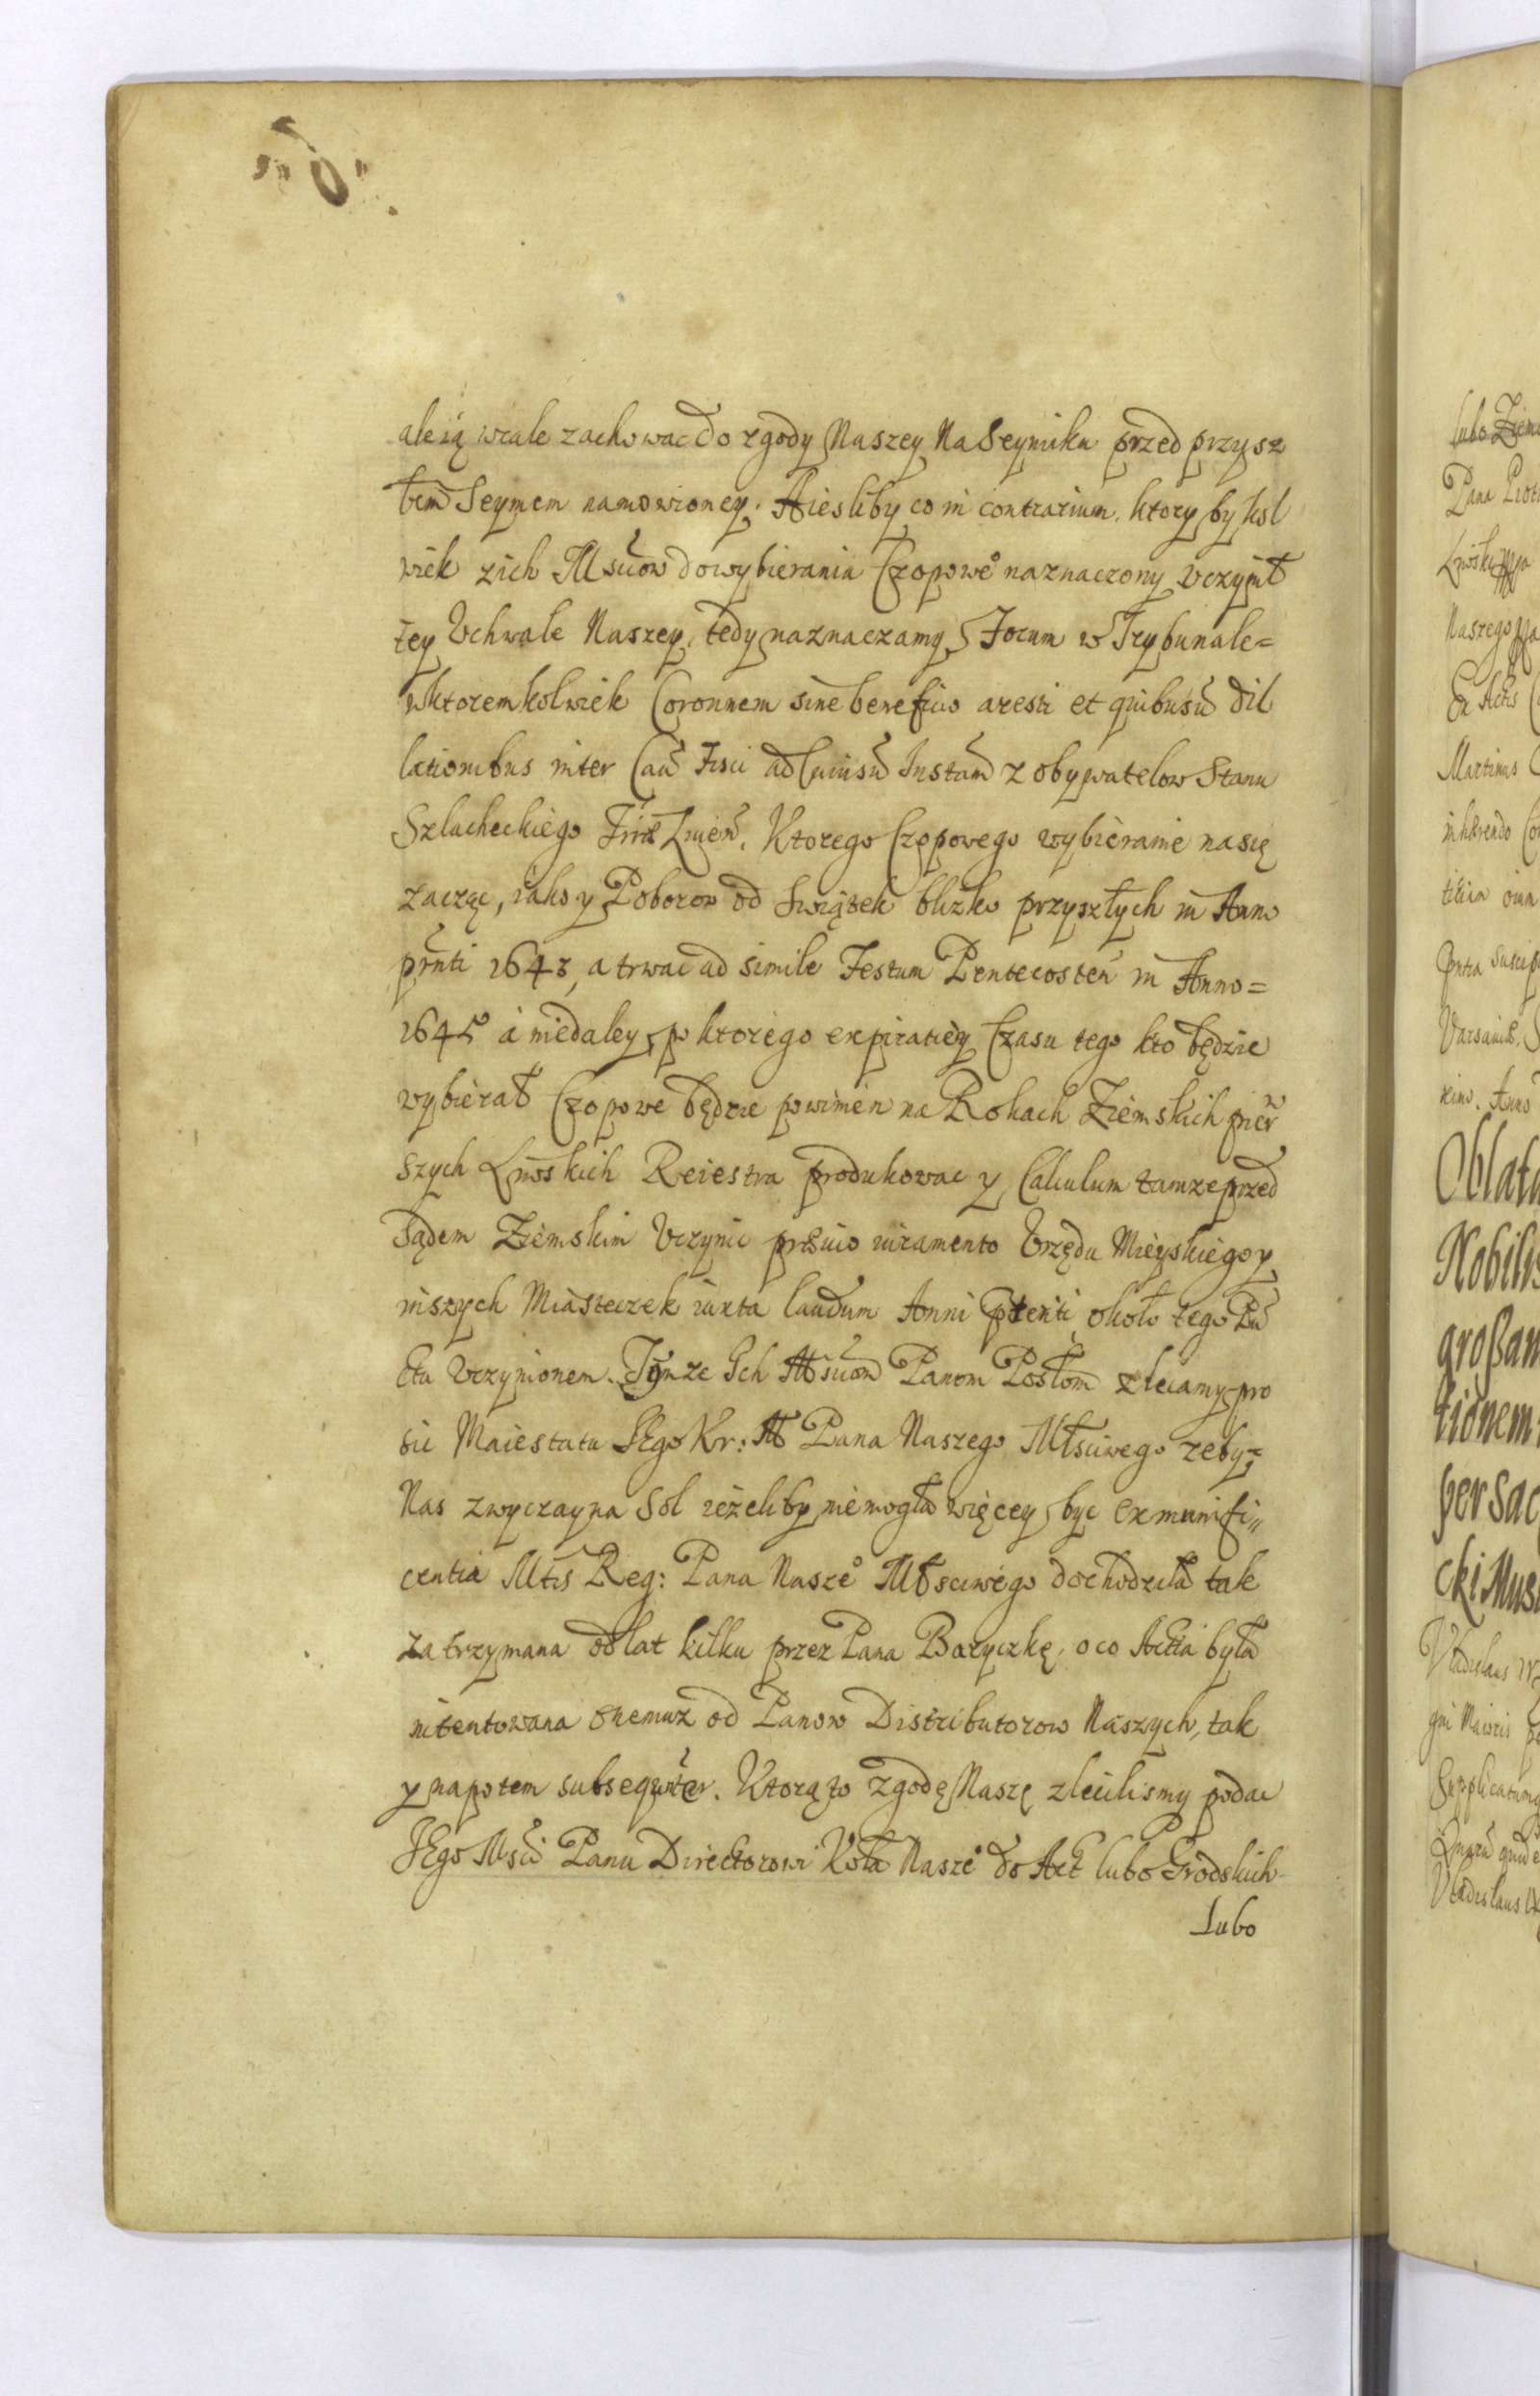 ale ią wcale zachować do zgody Naszey Na Seymiku przed przysz
łem Seymem namowioney. A iesliby co in contrarium, ktory by kol
wiek z ich Mściow do wybierania Czopowe° naznaczony vczynił
tey Vchwale Naszey, tedy naznaczamy Forum w Trybunale=
w ktoremkolwiek Coronnem sine beneficio aresti et quibusū dil
lationibus inter Cau Fisci ad Cuiusū Instam z obywatelow Stanu
Szlacheckiego. Ktorego Czopowego wybieranie na się
zacząc, iako y Poborow od Swiątek blizko przyszłych in Anno
prnti 1643, a trwac ad simile Festum Pentecosten in Anno=
1645 a niedaley, po ktorego expiratiey Czasu tego kto będzie
wybierał Czopowe będzie powinien na Rokach Ziemskich pier
szych Lwskich Reiestra produkowac y Calculum tamze przed
Sądem Ziemskim Vczynic prȩuio iuramento Vrzędu Mieyskiego y
inszych Miasteczek iuxta laudum Anni około tego Pu
ktu Vczynionem. Tymze Ich Mściom Panom Posłom zlecamy pro
sic Maiestatu IEgo Kr: M Pana Naszego Młsciwego zeby=
Nas zwyczayna Sol iezeliby niemogła więcey byc ex munifi„
centia Mtis Reg: Pana Nasze° Młsciwego dochodziła tak
zatrzymana od lat kilku przez Pana Baryczkę, o co Actia była
intentowana onemuz od Panow Distributorow Naszych, tak
y napotem subsequnter. Ktorą to zgodę Naszę zlecilismy podac
IEgo Msci Panu Directorowi Koła Nasze° do Act lubo Grodskich
Lubo
lubo Ziems
Pana Piotr
Naszego
Ex Actis
Martinus
inhærendo
Varsaviæ
Anno
Oblata
Nobilis
großam
tionem
per sac
cki Mus
Vladislaus
Supplicatum
Vladislaus